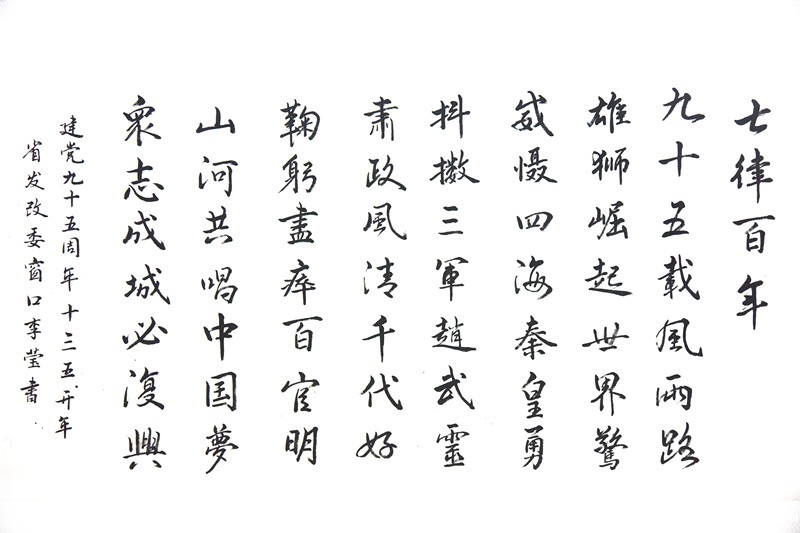 七律百年
九十五載風雨路
雄獅崛起世界驚
威慑四海秦皇勇
抖擻三軍趙武靈
肅政風清千代好
鞠躬盡瘁百官明
山河共唱中国夢
衆志成城必復興
建党九十五周年十三五开年
省发改委窗口李莹書